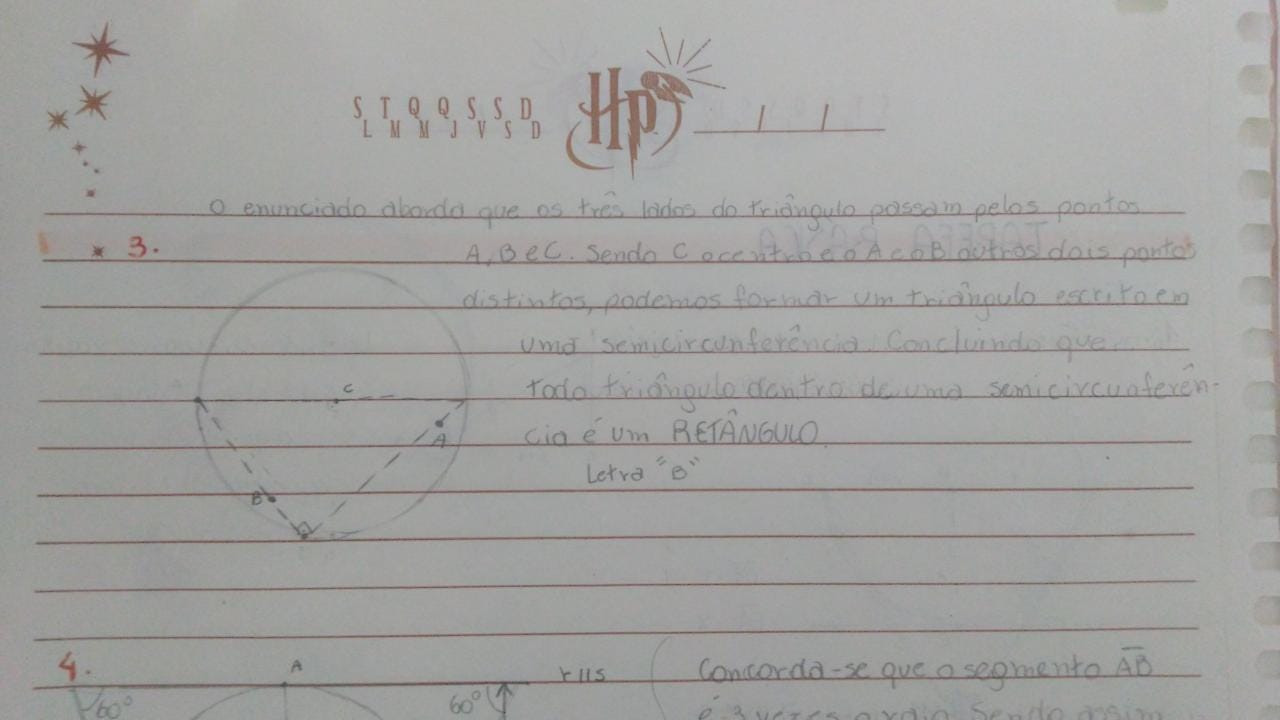 S T Q Q S S D
L M M J V S D
HP
O enunciado aborda que os três lados do triângulo passam pelos pontos
3.
A, B e C. Sendo C o centro e o A e o B outros dois pontos
distintos, podemos formar um triângulo escrito em
uma semicircunferência. Concluindo que
todo triângulo dentro de uma semicircunferên-
cia é um RETÂNGULO.
Letra "B"
C
A
B
4.
A
r//s
60°
60°
Concorda-se que o segmento AB
é 3 vezes o raio. Sendo assim